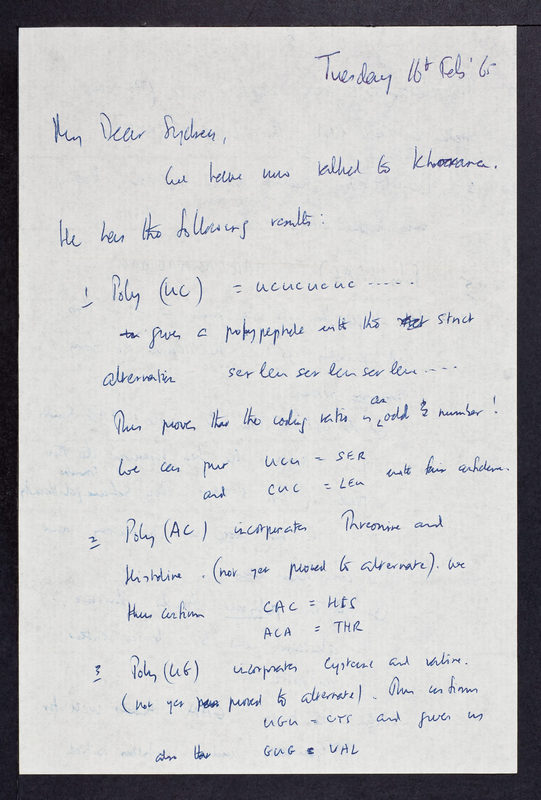 Tuesday 16th Feb '65
My Dear Sydney,
We have now talked to Khorana.
He has the following results:
1 Poly (UC) = UCUCUCUC .....
gives a polypeptide with the strict
alternation ser leu ser leu ser leu ....
This proves that the coding ratio is an odd number!
We can put UCU = SER
and CUC = LEU with fair confidence.
2 Poly (AC) incorporates Threonine and
Histidine. (not yet proved to alternate). We
thus confirm CAC = HIS
ACA = THR
3 Poly (UG) incorporates cysteine and valine.
(not yet proved to alternate). This confirms
UGU = CYS and gives us
also the GUG = VAL